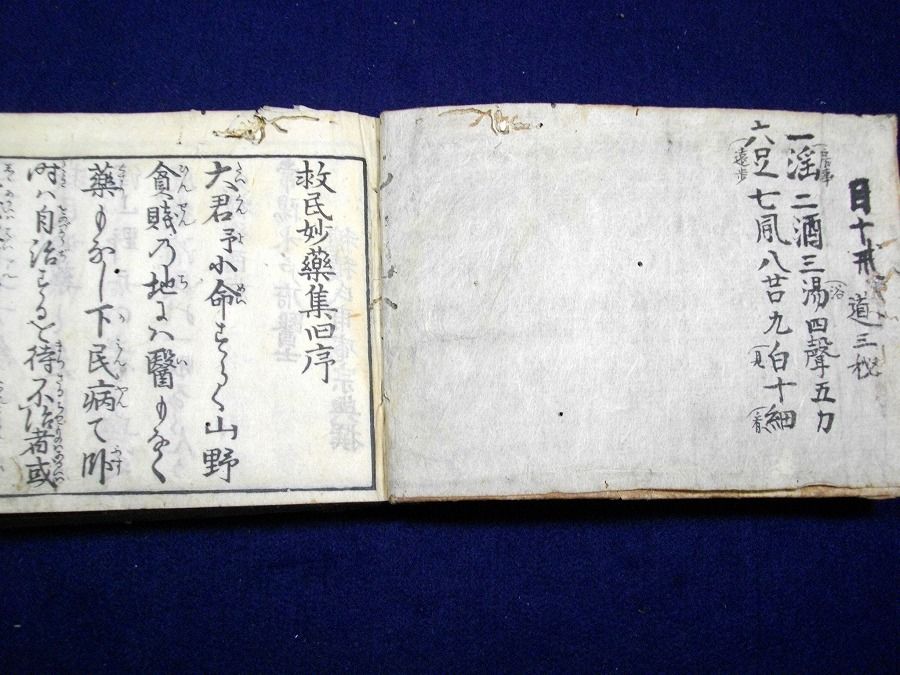 目十戒 道三秘
一淫 二酒 三湯 四聲 五力
六足 七風 八廿 九白 十細
遠歩
浴
救民妙藥集旧序
大君予尓命することく山野
貧賤乃地には醫もなく
藥もなし下民病て臥
時ハ自治するを待不治者或